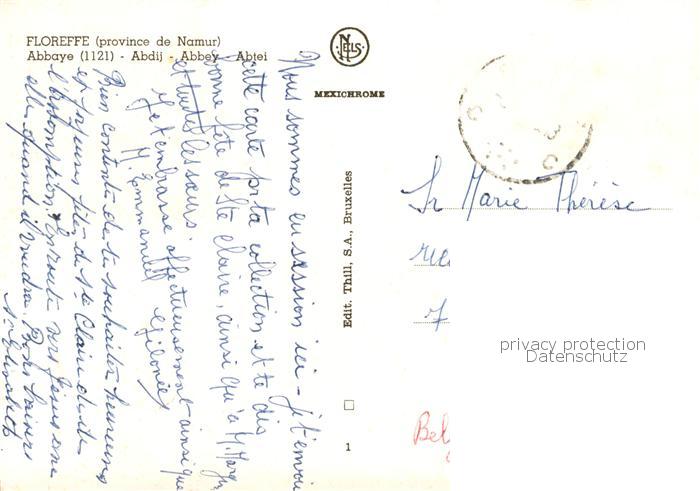 FLOREFFE (province de Namur)
Abbaye (1121) - Abdij - Abbey - Abtei
NELS
MEXICHROME
Edit. Thill, S.A., Bruxelles
1
Nous sommes en session ici - je t'envoie
cette carte pr ta collection et te dis
bonne fête de Ste Claire, ainsi qu'à M. Marg.
et toutes les sœurs.
Je t'embrasse affectueusement ainsi que
M. Emmanuel
Bien contente de te souhaiter heureuse
et joyeuse fête de Ste Claire et de
l'Assomption. En route vers Jésus
quand il voudra. Bons baisers
Sr Elisabeth
Sr Marie Thérèse
rue
7
Bel
privacy protection
Datenschutz